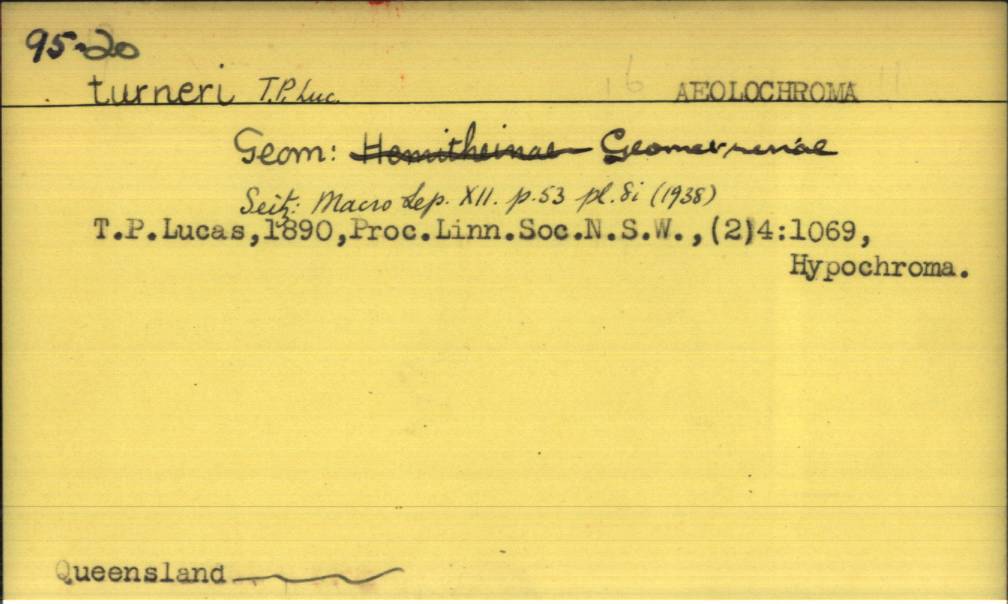 95-20
turneri T.P. Luc. 16 AEOLOCHROMA 11
Geom: Hemitheinae Geometrinae
Seitz: Macro Lep. XII. p.53 pl.8i (1938)
T.P.Lucas,1890,Proc.Linn.Soc.N.S.W.,(2)4:1069,
Hypochroma.
Queensland